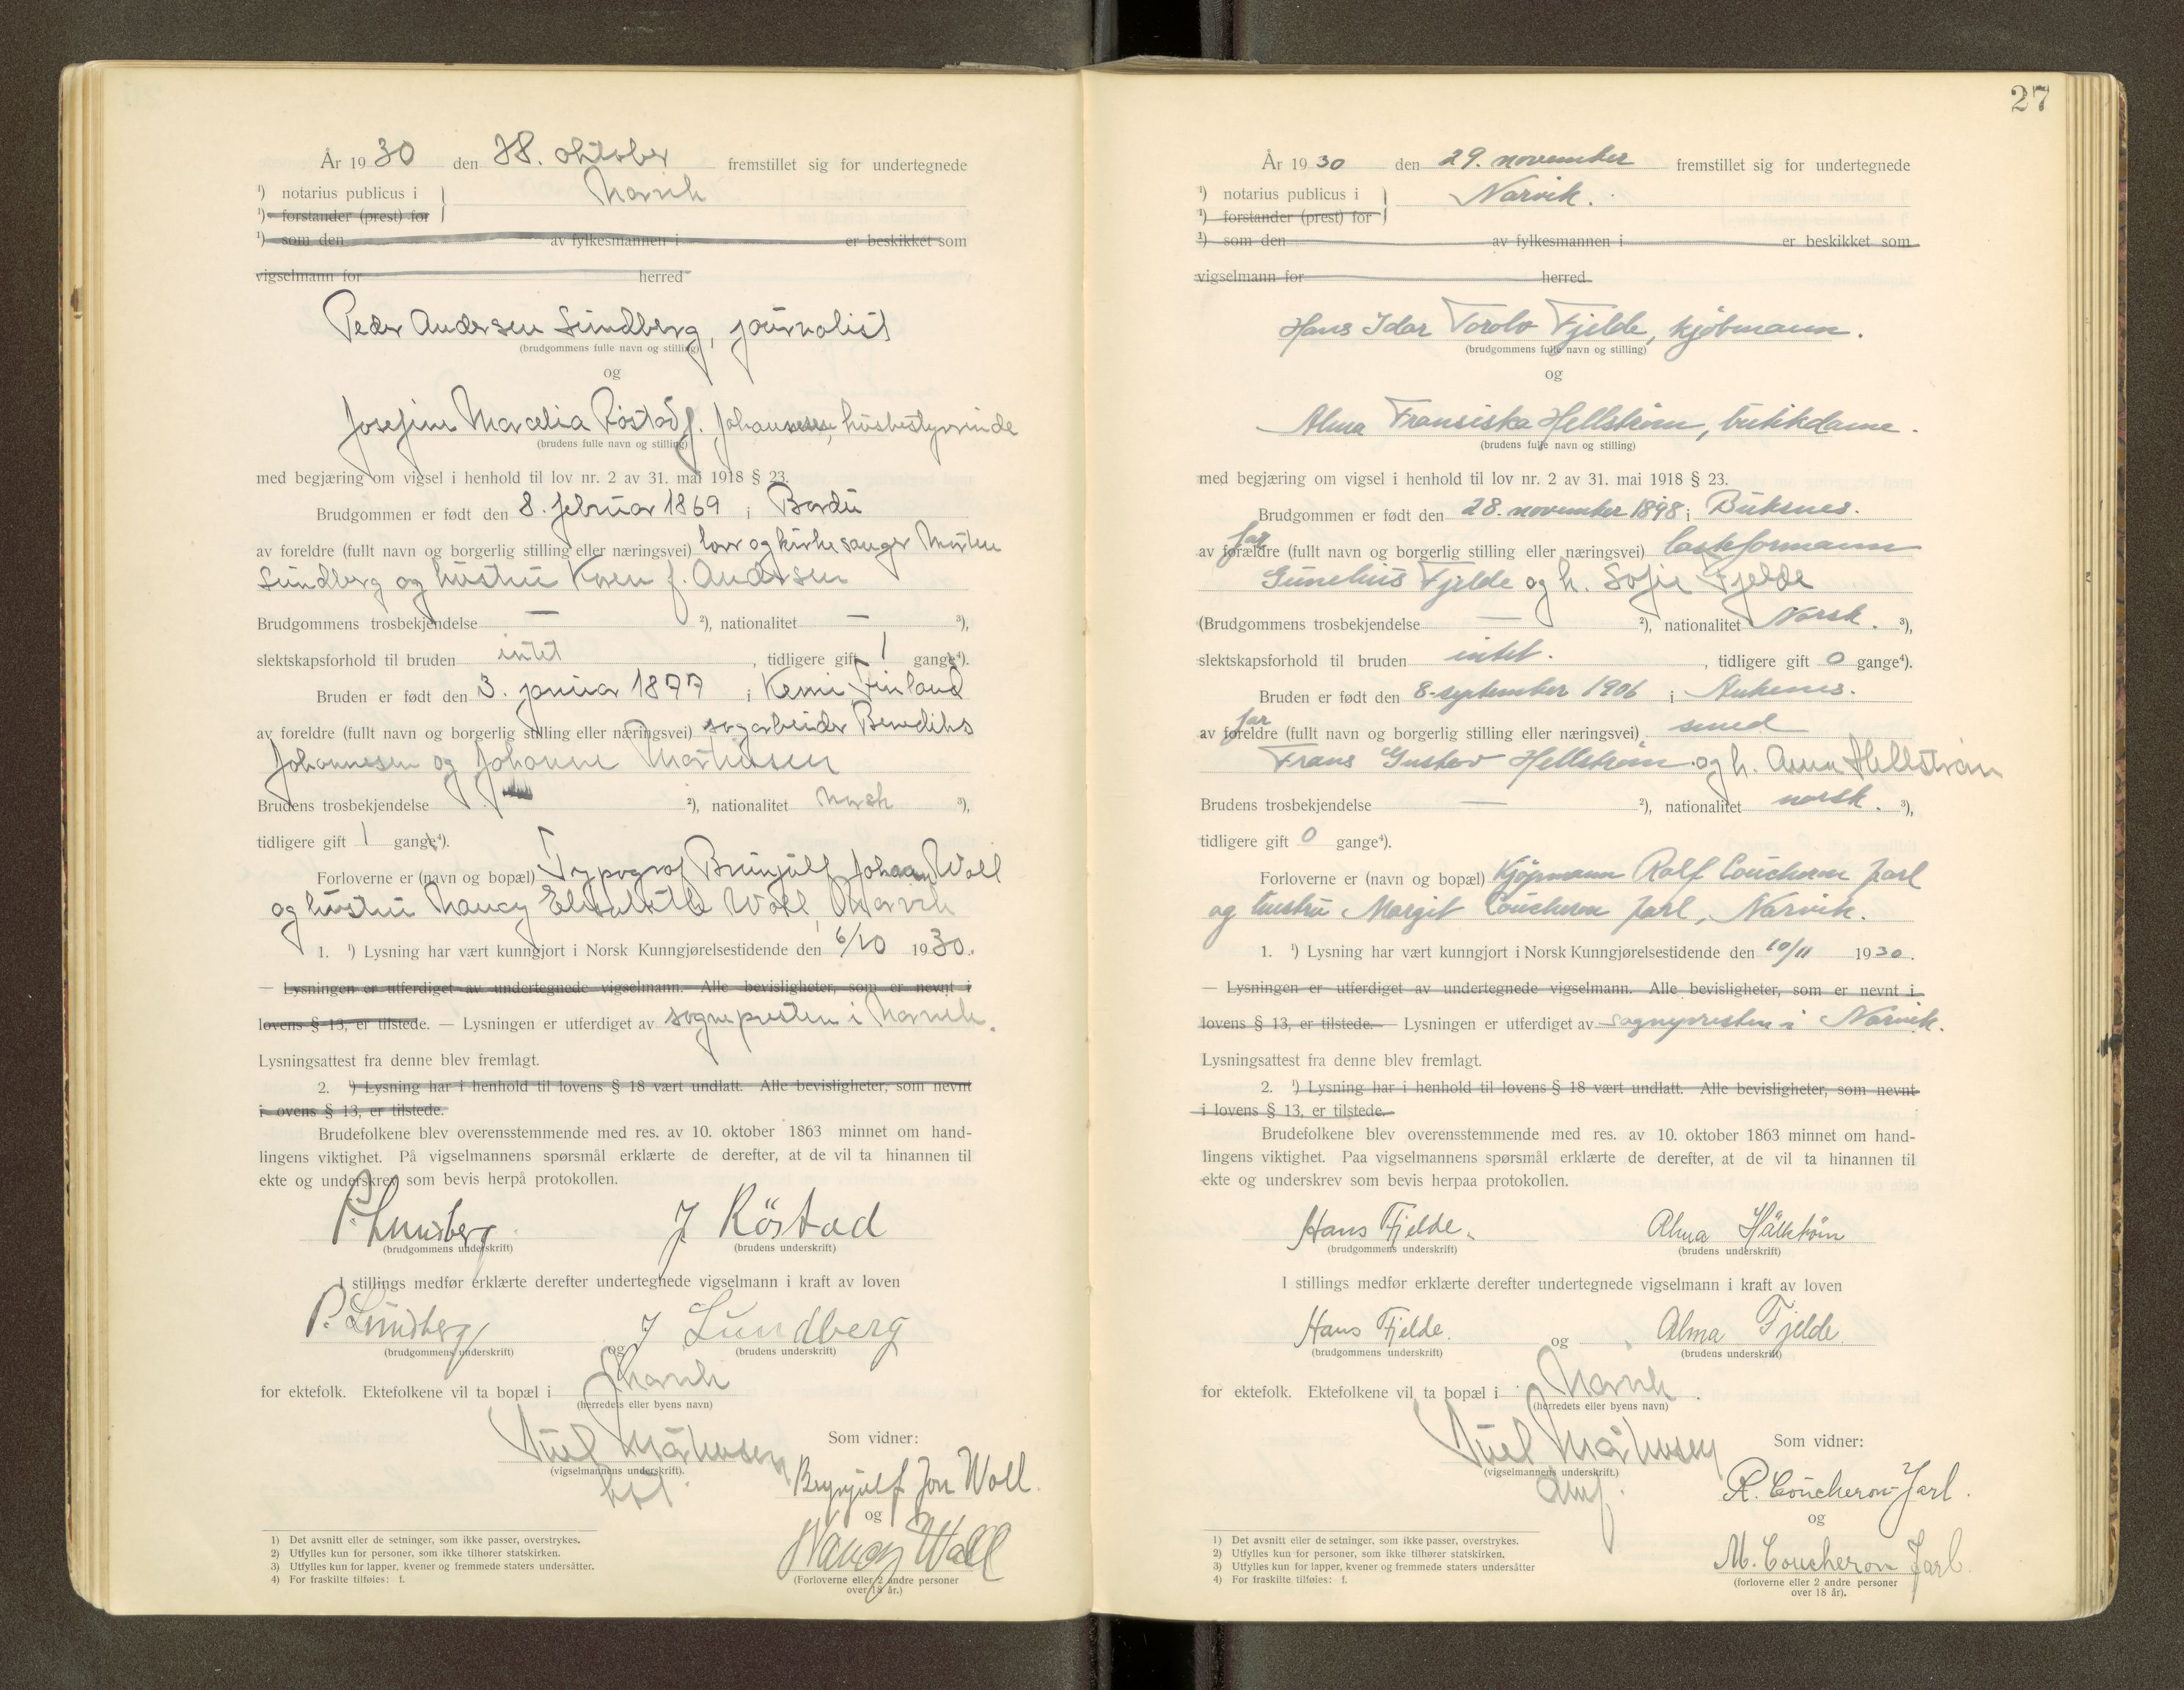 År 1930 den 28. oktober fremstillet sig for undertegnede
¹) notarius publicus i Narvik
¹) forstander (prest) for
¹) som den av fylkesmannen i er beskikket som
vigselmann for herred
Peder Andersen Lundberg, journalist
(brudgommens fulle navn og stilling)
og
Josefine Marcelia Röstad f. Johannesen, husbestyrerinde
(brudens fulle navn og stilling)
med begjæring om vigsel i henhold til lov nr. 2 av 31. mai 1918 § 23.
Brudgommen er født den 8. februar 1869 i Bardu
av foreldre (fullt navn og borgerlig stilling eller næringsvei) lærer og kirkesanger
Lundberg og hustru Karen f. Andersen
Brudgommens trosbekjendelse — ²), nationalitet — ³),
slektskapsforhold til bruden intet, tidligere gift 1 gange⁴).
Bruden er født den 3. januar 1877 i Kemi Finland
av foreldre (fullt navn og borgerlig stilling eller næringsvei) sagarbeider Benedikts
Johannesen og Johanne Martinsen
Brudens trosbekjendelse ²), nationalitet norsk ³),
tidligere gift 1 gange⁴).
Forloverne er (navn og bopæl) Typograf Brynjulf Johan Woll
og hustru Nancy Elisabeth Woll, Narvik
1. ¹) Lysning har vært kunngjort i Norsk Kunngjørelsestidende den 6/10 1930.
— Lysningen er utferdiget av undertegnede vigselmann. Alle bevisligheter, som er nevnt i
lovens § 13, er tilstede. — Lysningen er utferdiget av sognepresten i Narvik.
Lysningsattest fra denne blev fremlagt.
2. ¹) Lysning har i henhold til lovens § 18 vært undlatt. Alle bevisligheter, som nevnt
i ovens § 13, er tilstede.
Brudefolkene blev overensstemmende med res. av 10. oktober 1863 minnet om hand-
lingens viktighet. På vigselmannens spørsmål erklærte de derefter, at de vil ta hinannen til
ekte og underskrev som bevis herpå protokollen.
P. Lundberg J Röstad
(brudgommens underskrift) (brudens underskrift)
I stillings medfør erklærte derefter undertegnede vigselmann i kraft av loven
P. Lundberg og J Lundberg
(brudgommens underskrift) (brudens underskrift)
for ektefolk. Ektefolkene vil ta bopæl i Narvik
(herredets eller byens navn)
Som vidner:
(vigselmannens underskrift).
Brynjulf Jon Woll.
og
Nancy Woll
(Forloverne eller 2 andre personer
over 18 år.)
1) Det avsnitt eller de setninger, som ikke passer, overstrykes.
2) Utfylles kun for personer, som ikke tilhører statskirken.
3) Utfylles kun for lapper, kvener og fremmede staters undersåtter.
4) For fraskilte tilføies: f.
27
År 1930 den 29. november fremstillet sig for undertegnede
¹) notarius publicus i Narvik.
¹) forstander (prest) for
¹) som den av fylkesmannen i er beskikket som
vigselmann for herred
Hans Idar Torolv Fjelde, kjøbmann.
(brudgommens fulle navn og stilling)
og
Alma Fransiska Hellstrøm, butikdame.
(brudens fulle navn og stilling)
med begjæring om vigsel i henhold til lov nr. 2 av 31. mai 1918 § 23.
Brudgommen er født den 28. november 1898 i Buksnes.
far
av forældre (fullt navn og borgerlig stilling eller næringsvei) lasteformann
Gunelius Fjelde og h. Sofie Fjelde
(Brudgommens trosbekjendelse — ²), nationalitet Norsk. ³),
slektskapsforhold til bruden intet., tidligere gift 0 gange⁴).
Bruden er født den 8. september 1906 i Ankenes.
far
av foreldre (fullt navn og borgerlig stilling eller næringsvei) smed
Frans Gustav Hellstrøm og h. Anna Hellstrøm
Brudens trosbekjendelse — ²), nationalitet norsk. ³),
tidligere gift 0 gange⁴).
Forloverne er (navn og bopæl) Kjøpmann Rolf Coucheron Jarl
og hustru Margit Coucheron Jarl, Narvik.
1. ¹) Lysning har vært kunngjort i Norsk Kunngjørelsestidende den 10/11 1930.
— Lysningen er utferdiget av undertegnede vigselmann. Alle bevisligheter, som er nevnt i
lovens § 13, er tilstede. — Lysningen er utferdiget av sognepresten i Narvik.
Lysningsattest fra denne blev fremlagt.
2. ¹) Lysning har i henhold til lovens § 18 vært undlatt. Alle bevisligheter, som nevnt
i lovens § 13, er tilstede.
Brudefolkene blev overensstemmende med res. av 10. oktober 1863 minnet om hand-
lingens viktighet. Paa vigselmannens spørsmål erklærte de derefter, at de vil ta hinannen til
ekte og underskrev som bevis herpaa protokollen.
Hans Fjelde. Alma Hällstrøm
(brudgommens underskrift) (brudens underskrift)
I stillings medfør erklærte derefter undertegnede vigselmann i kraft av loven
Hans Fjelde. og Alma Fjelde
(brudgommens underskrift) (brudens underskrift)
for ektefolk. Ektefolkene vil ta bopæl i Narvik.
(herredets eller byens navn)
Som vidner:
(vigselmannens underskrift.)
R. Coucheron-Jarl.
og
M. Coucheron Jarl.
(forloverne eller 2 andre personer
over 18 år).
1) Det avsnitt eller de setninger, som ikke passer, overstrykes.
2) Utfylles kun for personer, som ikke tilhører statskirken.
3) Utfylles kun for lapper, kvener og fremmede staters undersåtter
4) For fraskilte tilføies: f.